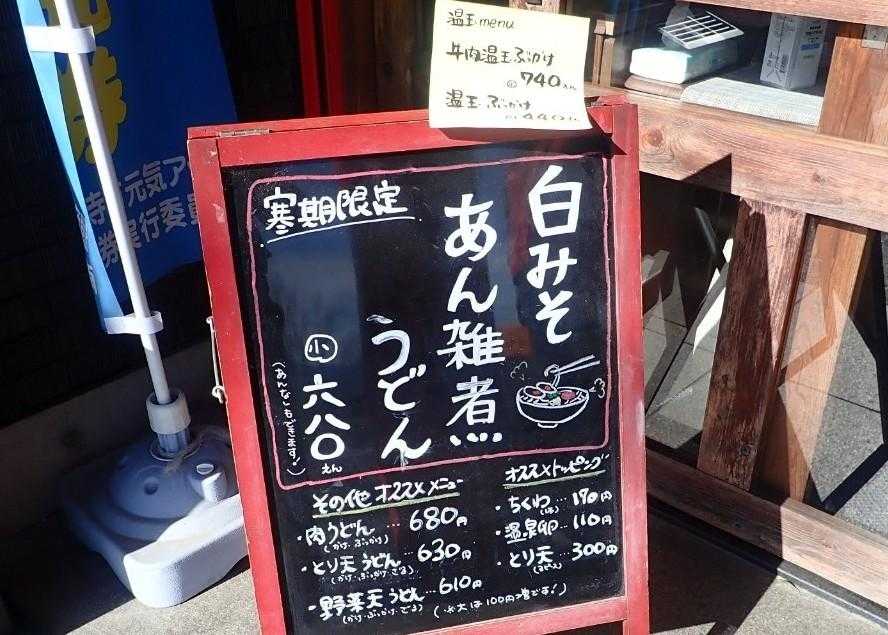 温玉menu
牛肉温玉ぶっかけ
小740えん
温玉ぶっかけ
440えん
寒期限定
白みそ
あん雑煮
うどん
小 六八〇えん
(あんなしもできます!)
その他オススメメニュー
・肉うどん…680円
(かけ・ぶっかけ)
・とり天うどん…630円
(かけ・ぶっかけ・ざる)
・野菜天うどん…610円
(かけ・ぶっかけ・ざる)
オススメトッピング
・ちくわ…190円
・温泉卵…110円
・とり天…300円
(※大は100円増です!)
元気ア
券実行委員